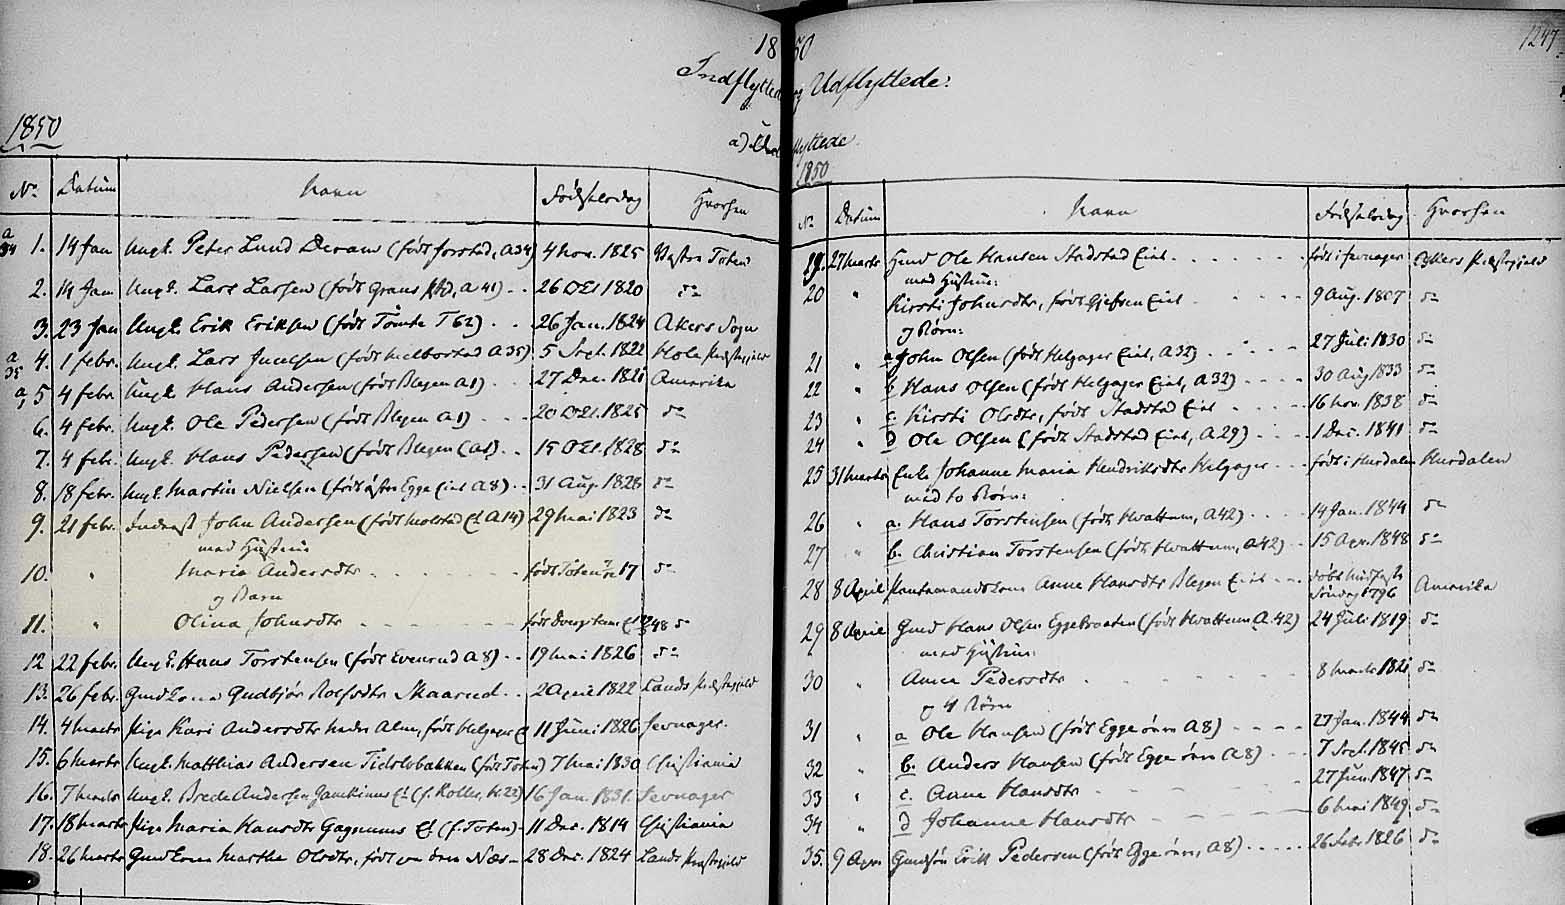 1850
1247
Indflyttede og Udflyttede:
1850
a) Udflyttede
1850
No Datum Navn Fødselsdag Hvorhen
a 34 1. 14 Jan Ungk. Peter Lund (født A34) 4 Nov. 1825 Vestre Toten
2. 14 Jan Ungk. Lars Larsen (født Grans A41) 26 Oct 1820 do
3. 23 Jan Ungk. Erik Eriksen (født Tømte T62) 26 Jan. 1824 Akers Sogn
a 35 4. 1 febr. Ungk. Lars (født A35) 5 Sept. 1822 Hole Præstegjeld
a, 5 4 febr. Ungk. Hans Andersen (født Blegen A1) 27 Dec. 1821 Amerika
6. 4 febr. Ungk. Ole Pedersen (født Blegen A1) 20 Oct. 1825 do
7. 4 febr. Ungk. Hans Pedersen (født Blegen A1) 15 Oct. 1828 do
8. 18 febr. Ungk. Martin Nielsen (født Egge Eiet A8) 31 Aug. 1828 do
9. 21 febr. Inderst John Andersen (født Molstad A14) 29 Mai 1823 do
med Hustrue
10. " Maria Andersdtr født Toten 17 do
og Barn
11. " Olina Johnsdtr født 48 do
12 22 febr. Ungk. Hans Torstensen (født Evenrud A8) 19 Mai 1826 do
13. 26 febr. Gudbjør Rolfsdtr Skaarud 2 April 1822 Lands Præstegjeld
14. 4 Marts Pige Kari Andersdtr Alm, født Helgager 11 Juni 1826 Jevnager.
15. 6 Marts Ungk. Matthias Andersen (født Toten) 7 Mai 1830 Christiania
16. 7 Marts Ungk. Brede Andersen 16 Jan. 1831. Jevnager
17. 18 Marts Pige Maria Hansdtr (f. Toten) 11 Dec. 1814 Christiania
18. 26 Marts Marthe Olsdtr, født 28 Dec. 1824 Lands Præstegjeld
No Datum Navn Fødselsdag Hvorhen
19. 27 Marts Hans Ole Hansen Stadstad Eiet født i Jevnager Præstegjeld
med Hustrue:
20 " Kirsti Johnsdtr, født Eiet 9 Aug. 1807 do
og Børn:
21 " a John Olsen (født Helgager Eiet, A32) 27 Juli 1830 do
22 " b Hans Olsen (født Helgager Eiet, A32) 30 Aug 1833 do
23 " c. Kirsti Olsdtr, født Stadstad Eiet 16 Nov. 1838 do
24 " d Ole Olsen (født Stadstad Eiet, A29) 1 Dec. 1841 do
25 31 Marts Enke Johanne Maria Hendriksdtr Helgager født i Hurdalen Hurdalen
med to Børn:
26 " a. Hans Torstensen (født Hvattum, A42) 14 Jan. 1844 do
27 " b. Christian Torstensen (født Hvattum, A42) 15 Apr. 1848 do
28 8 April Anne Hansdtr Blegen Eiet døbt Søndag 1796 Amerika
29 8 April Gmd Hans Olsen Eggebraaten (født Hvattum A.42) 24 Juli 1819 do
med Hustrue:
30 " Anne Pedersdtr 8 Marts 1821 do
og 4 Børn
31 " a Ole Hansen (født Egge øvre A8) 27 Jan. 1844 do
32 " b. Anders Hansen (født Egge øvre A8) 7 Sept. 1845 do
33 " c. Anne Hansdtr 27 Jun. 1847 do
34 " d Johanne Hansdtr 6 Mai 1849 do
35. 9 Apr. Gmdsøn Erik Pedersen (født Egge øvre, A8) 26 Febr 1826 do